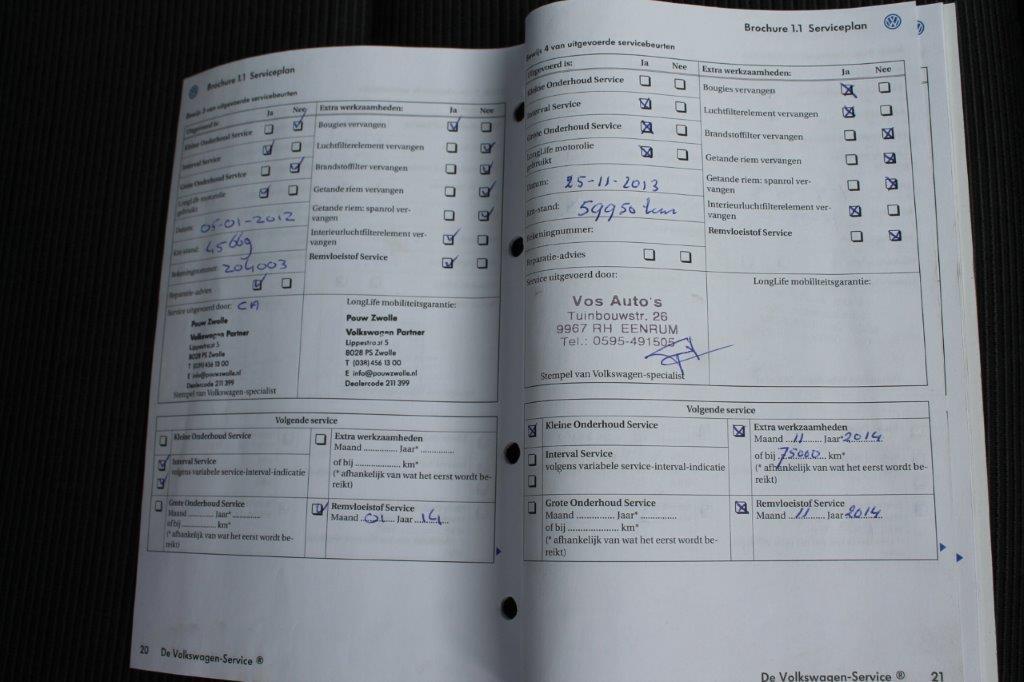 Brochure 1.1 Serviceplan
Bewijs 3 van uitgevoerde servicebeurten
Uitgevoerd is: Ja Nee
Kleine Onderhoud Service
Interval Service
Grote Onderhoud Service
LongLife motorolie
gebruikt
Datum: 05-01-2012
Km-stand:
Rekeningnummer: 204003
Reparatie-advies
Extra werkzaamheden: Ja Nee
Bougies vervangen
Luchtfilterelement vervangen
Brandstoffilter vervangen
Getande riem vervangen
Getande riem: spanrol ver-
vangen
Interieurluchtfilterelement ver-
vangen
Remvloeistof Service
Service uitgevoerd door: CA
Pouw Zwolle
Volkswagen Partner
Lippestraat 5
8028 PS Zwolle
T (038) 456 13 00
E info@pouwzwolle.nl
Dealercode 211 399
Stempel van Volkswagen-specialist
LongLife mobiliteitsgarantie:
Pouw Zwolle
Volkswagen Partner
Lippestraat 5
8028 PS Zwolle
T (038) 456 13 00
E info@pouwzwolle.nl
Dealercode 211 399
Volgende service
Kleine Onderhoud Service
Interval Service
volgens variabele service-interval-indicatie
Grote Onderhoud Service
Maand ............ Jaar* ..............
of bij .................. km*
(* afhankelijk van wat het eerst wordt be-
reikt)
Extra werkzaamheden
Maand ............ Jaar* ..............
of bij .................. km*
(* afhankelijk van wat het eerst wordt be-
reikt)
Remvloeistof Service
Maand ..01.. Jaar ..14..
20 De Volkswagen-Service ®
Brochure 1.1 Serviceplan
Bewijs 4 van uitgevoerde servicebeurten
Uitgevoerd is: Ja Nee
Kleine Onderhoud Service
Interval Service
Grote Onderhoud Service
LongLife motorolie
gebruikt
Datum: 25-11-2013
Km-stand: 59950 km
Rekeningnummer:
Reparatie-advies
Extra werkzaamheden: Ja Nee
Bougies vervangen
Luchtfilterelement vervangen
Brandstoffilter vervangen
Getande riem vervangen
Getande riem: spanrol ver-
vangen
Interieurluchtfilterelement ver-
vangen
Remvloeistof Service
Service uitgevoerd door:
Vos Auto's
Tuinbouwstr. 26
9967 RH EENRUM
Tel.: 0595-491505
Stempel van Volkswagen-specialist
LongLife mobiliteitsgarantie:
Volgende service
Kleine Onderhoud Service
Interval Service
volgens variabele service-interval-indicatie
Grote Onderhoud Service
Maand ............... Jaar* ..............
of bij .................... km*
(* afhankelijk van wat het eerst wordt be-
reikt)
Extra werkzaamheden
Maand ..11.. Jaar* 2014
of bij 75000 km*
(* afhankelijk van wat het eerst wordt be-
reikt)
Remvloeistof Service
Maand ..11.. Jaar 2014
De Volkswagen-Service ® 21